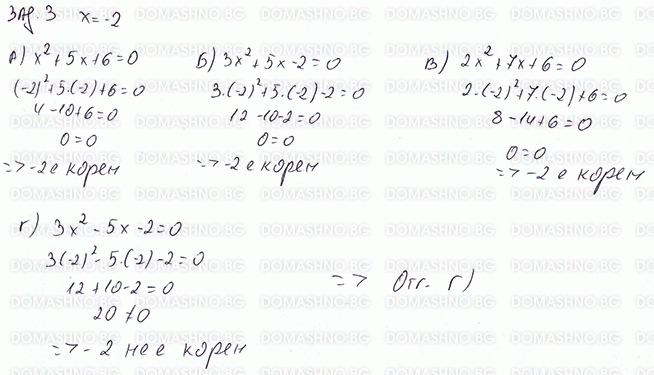 Зад. 3 x = -2
А) x² + 5x + 6 = 0
(-2)² + 5.(-2) + 6 = 0
4 - 10 + 6 = 0
0 = 0
=> -2 е корен
Б) 3x² + 5x - 2 = 0
3.(-2)² + 5.(-2) - 2 = 0
12 - 10 - 2 = 0
0 = 0
=> -2 е корен
В) 2x² + 7x + 6 = 0
2.(-2)² + 7.(-2) + 6 = 0
8 - 14 + 6 = 0
0 = 0
=> -2 е корен
г) 3x² - 5x - 2 = 0
3(-2)² - 5.(-2) - 2 = 0
12 + 10 - 2 = 0
20 ≠ 0
=> -2 не е корен
=> Отг. г)
DOMASHNO.BG